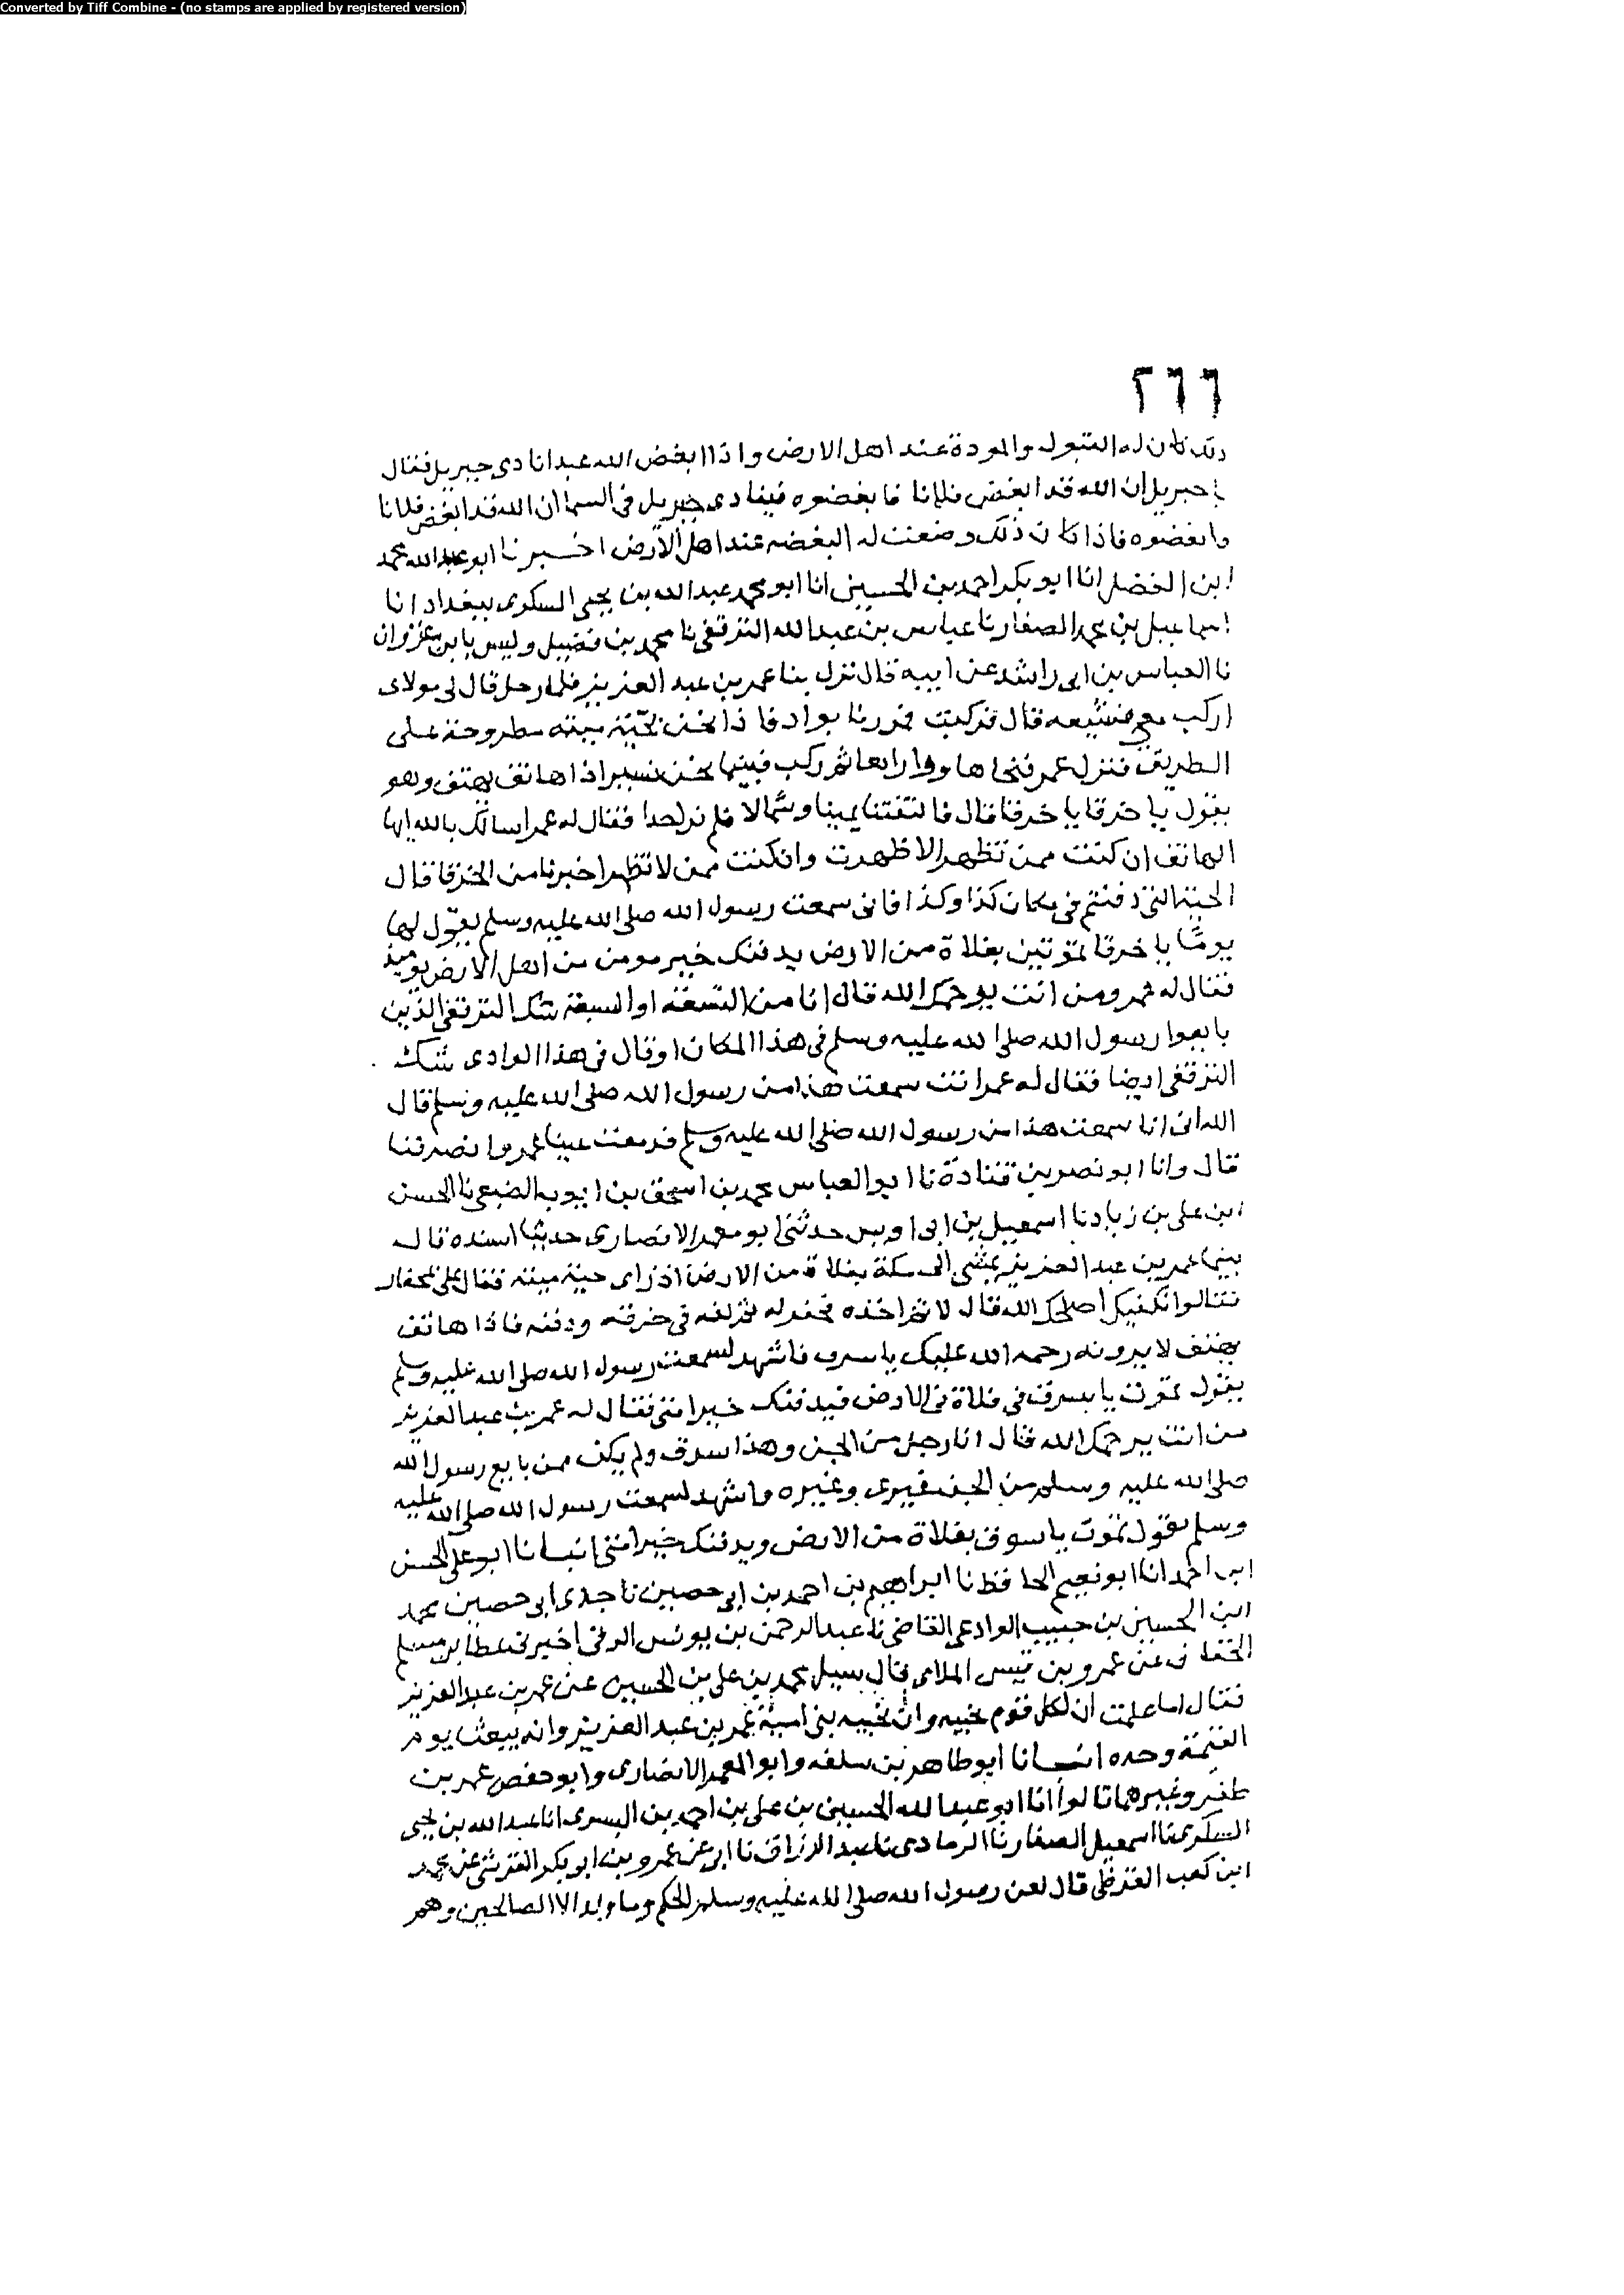 Converted by Tiff Combine - (no stamps are applied by registered version)
٢٦٦
ذلك كان له القبول والمودة عند اهل الارض واذا ابغض الله عبدا نادى جبريل فقال
يا جبريل ان الله قد ابغض فلانا فابغضوه فينادى جبريل فى السما ان الله قد ابغض فلانا
وابغضوه فاذا كان ذلك وضعت له البغضه عند اهل الارض اخبرنا ابو عبد الله محمد
ابن الفضل انا ابو بكر احمد بن الحسين انا ابو محمد عبد الله بن يحيى السكرى ببغداد انا
اسماعيل بن محمد الصفار نا عباس بن عبد الله الترقفى نا محمد بن فضيل وليس بابن غزوان
نا العباس بن ابى راشد عن ابيه قال نزل بنا عمر بن عبد العزيز فلما رحل قال لى مولاى
اركب معى فنشيعه قال فركبت فمررنا بواد فاذا نحن بحية ميته مطروحة على
الطريق فنزل عمر فنحاها وواراها ثم ركب فبينما نحن نسير اذا هاتف يهتف وهو
يقول يا خرقا يا خرقا قال فالتفتنا يمينا وشمالا فلم نر احدا فقال له عمر اسالك بالله ايها
الهاتف ان كنت ممن تظهر الا ظهرت وان كنت ممن لا تظهر اخبرنا من الخرقا قال
الحية التى دفنتم فى مكان كذا وكذا فانى سمعت رسول الله صلى الله عليه وسلم يقول لها
يوما يا خرقا تموتين بفلاة من الارض يدفنك خير مومن من اهل الارض يوميذ
فقال له عمر ومن انت يرحمك الله قال انا من التسعة او السبعة شك الترقفى الذين
بايعوا رسول الله صلى الله عليه وسلم فى هذا المكان او قال فى هذا الوادى شك
الترقفى ايضا فقال له عمر انت سمعت هذا من رسول الله صلى الله عليه وسلم قال
الله انى انا سمعت هذا من رسول الله صلى الله عليه وسلم فدمعت عينا عمر وانصرفنا
قال وانا ابو نصر بن قتادة نا ابو العباس محمد بن اسحق بن ايوب الضبعى نا الحسن
ابن على بن زياد نا اسمعيل بن ابى اويس حدثنى ابو معمر الانصارى حديثا اسنده قال
بينما عمر بن عبد العزيز يمشى الى مكة بفلاة من الارض اذ راى حية ميتة فقال على بمحفار
فقالوا نكفيك اصلحك الله قال لا ثم اخذه فحفر له ثم لفه فى خرقه ودفنه فاذا هاتف
يهتف لا يرونه رحمه الله عليك يا سرق فاشهد لسمعت رسول الله صلى الله عليه وسلم
يقول تموت يا سرق فى فلاة فى الارض فيدفنك خير امتى فقال له عمر بن عبد العزيز
من انت يرحمك الله قال انا رجل من الجن وهذا سرق ولم يكن ممن بايع رسول الله
صلى الله عليه وسلم من الجن غيرى وغيره واشهد لسمعت رسول الله صلى الله عليه
وسلم يقول تموت يا سرق بفلاة من الارض ويدفنك خير امتى انبانا ابو على الحسن
ابن احمد انا ابو نعيم الحافظ نا ابراهيم بن احمد بن ابى حصين نا جدى ابى حصين محمد
ابن الحسين بن حبيب الوادعى القاضى نا عبد الرحمن بن يونس الرقى اخبرنى عطا بن مسلم
الخفاف عن عمرو بن قيس الملاى قال سيل محمد بن على بن الحسين عن عمر بن عبد العزيز
فقال اما علمت ان لكل قوم نجيبه وان نجيبه بنى امية عمر بن عبد العزيز وانه يبعث يوم
القيمة وحده انبانا ابو طاهر بن سلفه وابو المعمر الانصارى وابو حفص عمر بن
ظفر وغيرهما قالوا انا ابو عبد الله الحسين بن على بن احمد بن البسرى انا عبد الله بن يحيى
السكرى نا اسمعيل الصفار نا الرمادى نا عبد الرزاق نا ابى عن عمرو بن ابو بكر القرشى عن محمد
ابن كعب القرظى قال لعن رسول الله صلى الله عليه وسلم الحكم وما ولد الا الصالحين وهم